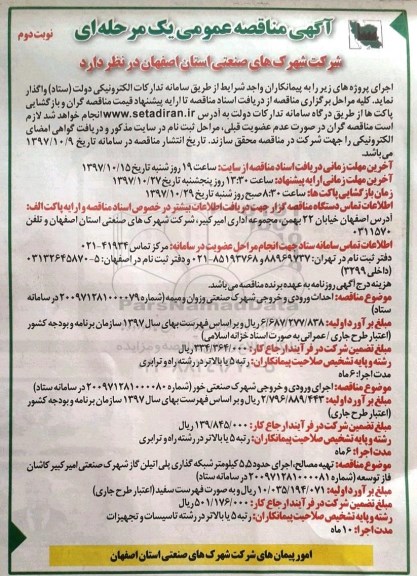 آگهی مناقصه عمومی یک مرحله ای
نوبت دوم
شرکت شهرک های صنعتی استان اصفهان در نظر دارد
اجرای پروژه های زیر را به پیمانکاران واجد شرایط از طریق سامانه تدارکات الکترونیکی دولت (ستاد) واگذار
نماید. کلیه مراحل برگزاری مناقصه از دریافت اسناد مناقصه تا ارایه پیشنهاد قیمت مناقصه گران و بازگشایی
پاکت ها از طریق درگاه سامانه تدارکات دولت به آدرس www.setadiran.ir انجام خواهد شد لازم
است مناقصه گران در صورت عدم عضویت قبلی، مراحل ثبت نام در سایت مذکور و دریافت گواهی امضای
الکترونیکی را جهت شرکت در مناقصه محقق سازند. تاریخ انتشار مناقصه در سامانه تاریخ ۱۳۹۷/۱۰/۹
می باشد.
آخرین مهلت زمانی دریافت اسناد مناقصه از سایت: ساعت ۱۹ روز شنبه تاریخ ۱۳۹۷/۱۰/۱۵
آخرین مهلت زمانی ارایه پیشنهاد: ساعت ۱۳:۳۰ روز پنجشنبه تاریخ ۱۳۹۷/۱۰/۲۷
زمان بازگشایی پاکت ها: ساعت ۸:۳۰ صبح روز شنبه تاریخ ۱۳۹۷/۱۰/۲۹
اطلاعات تماس دستگاه مناقصه گزار جهت دریافت اطلاعات بیشتر در خصوص اسناد مناقصه و ارایه پاکت الف:
آدرس اصفهان خیابان ۲۲ بهمن، مجموعه اداری امیرکبیر، شرکت شهرک های صنعتی استان اصفهان و تلفن
۰۳۱۱۵۷۰
اطلاعات تماس سامانه ستاد جهت انجام مراحل عضویت در سامانه: مرکز تماس ۴۱۹۳۴-۰۲۱
دفتر ثبت نام در تهران: ۸۸۹۶۹۷۳۷ و ۸۵۱۹۳۷۶۸-۰۲۱ و دفتر ثبت نام در اصفهان: ۵-۰۳۱۳۲۶۴۵۸۷۰
(داخلی ۳۲۹۹)
هزینه درج آگهی روزنامه به عهده برنده مناقصه می باشد.
موضوع مناقصه: احداث ورودی و خروجی شهرک صنعتی وزوان ومیمه (شماره ۲۰۰۹۷۱۲۸۱۰۰۰۰۷۹ در سامانه
ستاد)
مبلغ برآورد اولیه: ۶/۶۸۷/۲۷۷/۸۳۸ ریال و بر اساس فهرست بهای سال ۱۳۹۷ سازمان برنامه و بودجه کشور
(اعتبار طرح جاری / عمرانی به صورت اسناد خزانه اسلامی)
مبلغ تضمین شرکت در فرآیند ارجاع کار: ۳۳۴/۳۶۴/۰۰۰ ریال
رشته و پایه تشخیص صلاحیت پیمانکاران: رتبه ۵ یا بالاتر در رشته راه و ترابری
مدت اجرا: ۶ ماه
موضوع مناقصه: اجرای ورودی و خروجی شهرک صنعتی خور (شماره ۲۰۰۹۷۱۲۸۱۰۰۰۰۸۰ در سامانه ستاد)
مبلغ برآورد اولیه: ۲/۷۹۶/۸۸۹/۴۴۳ ریال و بر اساس فهرست بهای سال ۱۳۹۷ سازمان برنامه و بودجه کشور
(اعتبار طرح جاری)
مبلغ تضمین شرکت در فرآیند ارجاع کار: ۱۳۹/۸۴۵/۰۰۰ ریال
رشته و پایه تشخیص صلاحیت پیمانکاران: رتبه ۵ یا بالاتر در رشته راه و ترابری
مدت اجرا: ۶ ماه
موضوع مناقصه: تهیه مصالح، اجرای حدود ۵.۵ کیلومتر شبکه گذاری پلی اتیلن گاز شهرک صنعتی امیرکبیر کاشان
فاز توسعه (شماره ۲۰۰۹۷۱۲۸۱۰۰۰۰۸۱ در سامانه ستاد)
مبلغ برآورد اولیه: ۱۰/۰۳۵/۱۹۴/۰۷۱ ریال و به صورت فهرست سفید (اعتبار طرح جاری)
مبلغ تضمین شرکت در فرآیند ارجاع کار: ۵۰۱/۱۷۶/۰۰۰ ریال
رشته و پایه تشخیص صلاحیت پیمانکاران: رتبه ۵ یا بالاتر در رشته تاسیسات و تجهیزات
مدت اجرا: ۱۰ ماه
امور پیمان های شرکت شهرک های صنعتی استان اصفهان